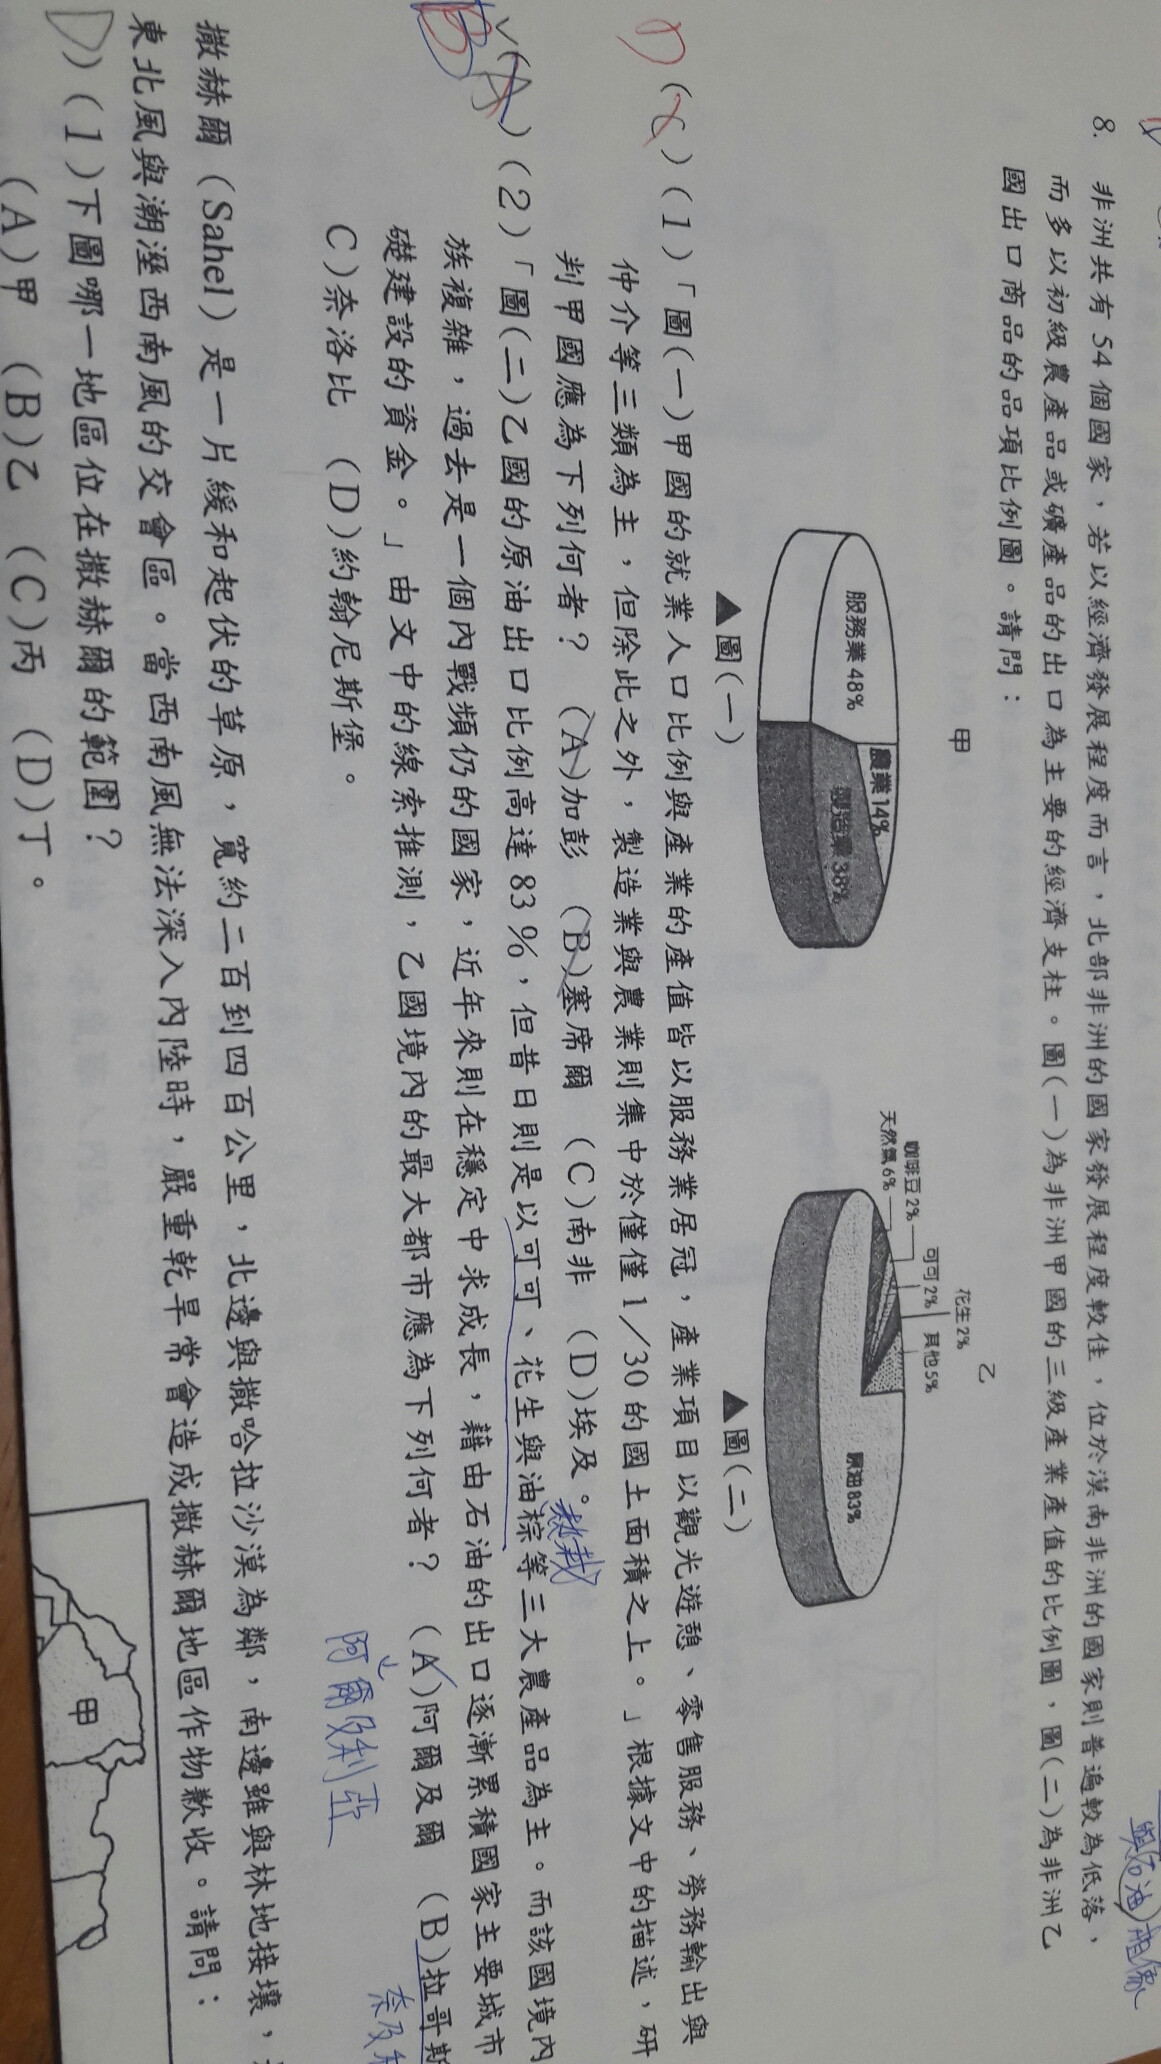 與石油 相像
8. 非洲共有 54 個國家，若以經濟發展程度而言，北部非洲的國家發展程度較佳，位於漠南非洲的國家則普遍較為低落，
而多以初級農產品或礦產品的出口為主要的經濟支柱。圖(一)為非洲甲國的三級產業產值的比例圖，圖(二)為非洲乙
國出口商品的品項比例圖。請問：
甲
服務業 48%
農業 14%
製造業 38%
▲圖(一)
乙
花生 2%
可可 2%
其他 5%
咖啡豆 2%
天然氣 6%
原油 83%
▲圖(二)
D (C) (1)「圖(一)甲國的就業人口比例與產業的產值皆以服務業居冠，產業項目以觀光遊憩、零售服務、勞務輸出與
仲介等三類為主，但除此之外，製造業與農業則集中於僅僅 1/30 的國土面積之上。」根據文中的描述，研
判甲國應為下列何者？ (A)加彭 (B)塞席爾 (C)南非 (D)埃及。
熱栽
B (A) (2)「圖(二)乙國的原油出口比例高達 83%，但昔日則是以可可、花生與油棕等三大農產品為主。而該國境內
族複雜，過去是一個內戰頻仍的國家，近年來則在穩定中求成長，藉由石油的出口逐漸累積國家主要城市
礎建設的資金。」由文中的線索推測，乙國境內的最大都市應為下列何者？ (A)阿爾及爾 (B)拉哥斯
C)奈洛比 (D)約翰尼斯堡。
阿爾及利亞
奈及利
撒赫爾（Sahel）是一片緩和起伏的草原，寬約二百到四百公里，北邊與撒哈拉沙漠為鄰，南邊雖與林地接壤，
東北風與潮溼西南風的交會區。當西南風無法深入內陸時，嚴重乾旱常會造成撒赫爾地區作物歉收。請問：
D) (1)下圖哪一地區位在撒赫爾的範圍？
(A)甲 (B)乙 (C)丙 (D)丁。
甲